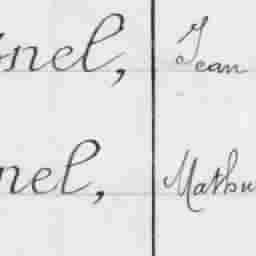 nel, Jean
nel, Mathu